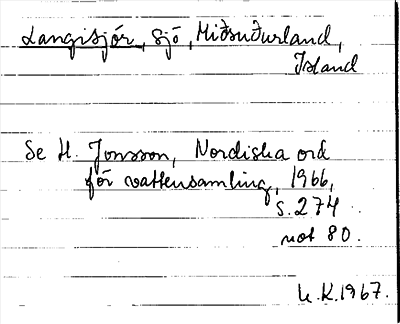 Langisjór, sjö, Miðsuðurland,
Island
Se H. Jonsson, Nordiska ord
för vattensamling, 1966,
s. 274
not 80.
k.K.1967.